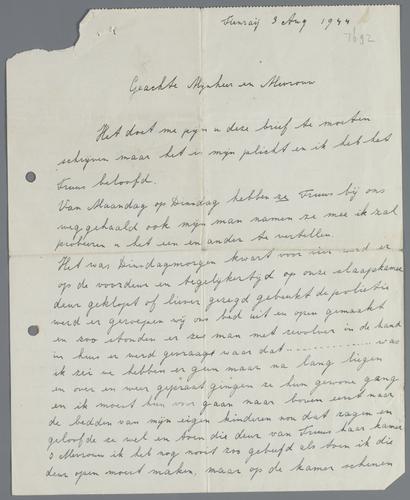 Tienray 3 Aug 1944
7692
Geachte Mijnheer en Mevrouw
Het doet me pijn u deze brief te moeten
schrijven maar het is mijn plicht en ik heb het
Truus beloofd.
Van Maandag op Dinsdag hebben ze Truus bij ons
weggehaald ook mijn man namen ze mee ik zal
proberen u het een en ander te vertellen.
Het was Dinsdagmorgen kwart voor vier werd er
op de voordeur en tegelijkertijd op onze slaapkamer
deur geklopt of liever gezegd gebeukt de polietie
werd er geroepen wij ons bed uit en open gemaakt
en zoo stonden er zes man met revolver in de hand
in huis er werd gevraagd waar dat .................. was
ik zei we hebben er geen maar na lang liegen
en over en weer gepraat gingen ze hun gewone gang
en ik moest hun voor gaan naar boven eerst naar
de bedden van mijn eigen kinderen nou dat zagen en
geloofde ze wel en toen die deur van Truus haar kamer
O Mevrouw ik heb nog nooit zoo gebeefd als toen ik die
deur open moest maken, maar op de kamer schenen